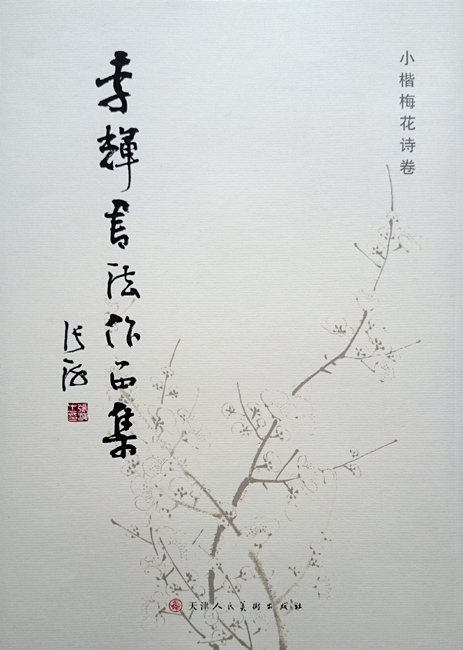 小楷梅花诗卷
李輝書法作品集
张海
天津人民美术出版社